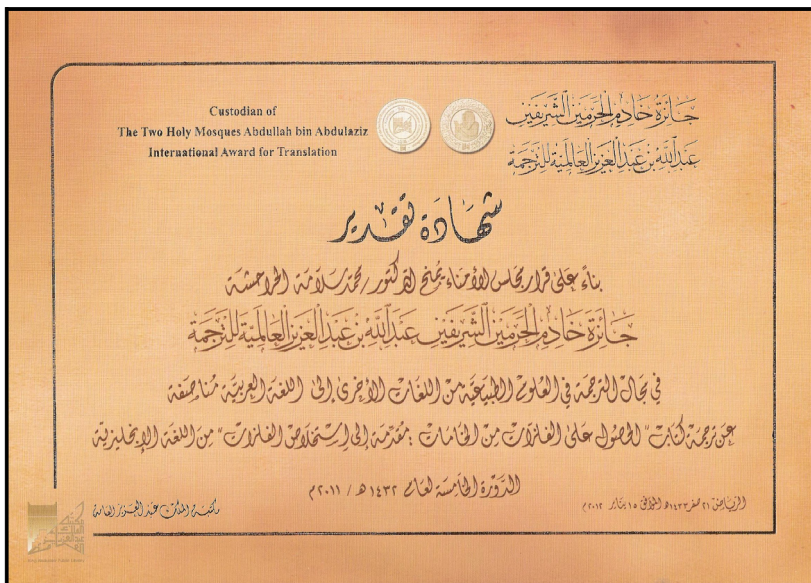 Custodian of
The Two Holy Mosques Abdullah bin Abdulaziz
International Award for Translation
جائزة خادم الحرمين الشريفين
عبدالله بن عبدالعزيز العالمية للترجمة
شهادة تقدير
بناء على قرار مجلس الأمناء يمنح الدكتور / محمد سلامة الحراحشة
جائزة خادم الحرمين الشريفين عبدالله بن عبدالعزيز العالمية للترجمة
في مجال الترجمة في العلوم الطبيعية من اللغات الأخرى إلى اللغة العربية مناصفة
عن ترجمة كتاب " الحصول على الفلزات من الخامات : مقدمة إلى إستخلاص الفلزات " من اللغة الإنجليزية
الدورة الخامسة لعام ١٤٣٢ هـ / ٢٠١١ م
الرياض ٢١ صفر ١٤٣٣هـ الموافق ١٥ يناير ٢٠١٢م
مكتبة الملك عبدالعزيز العامة